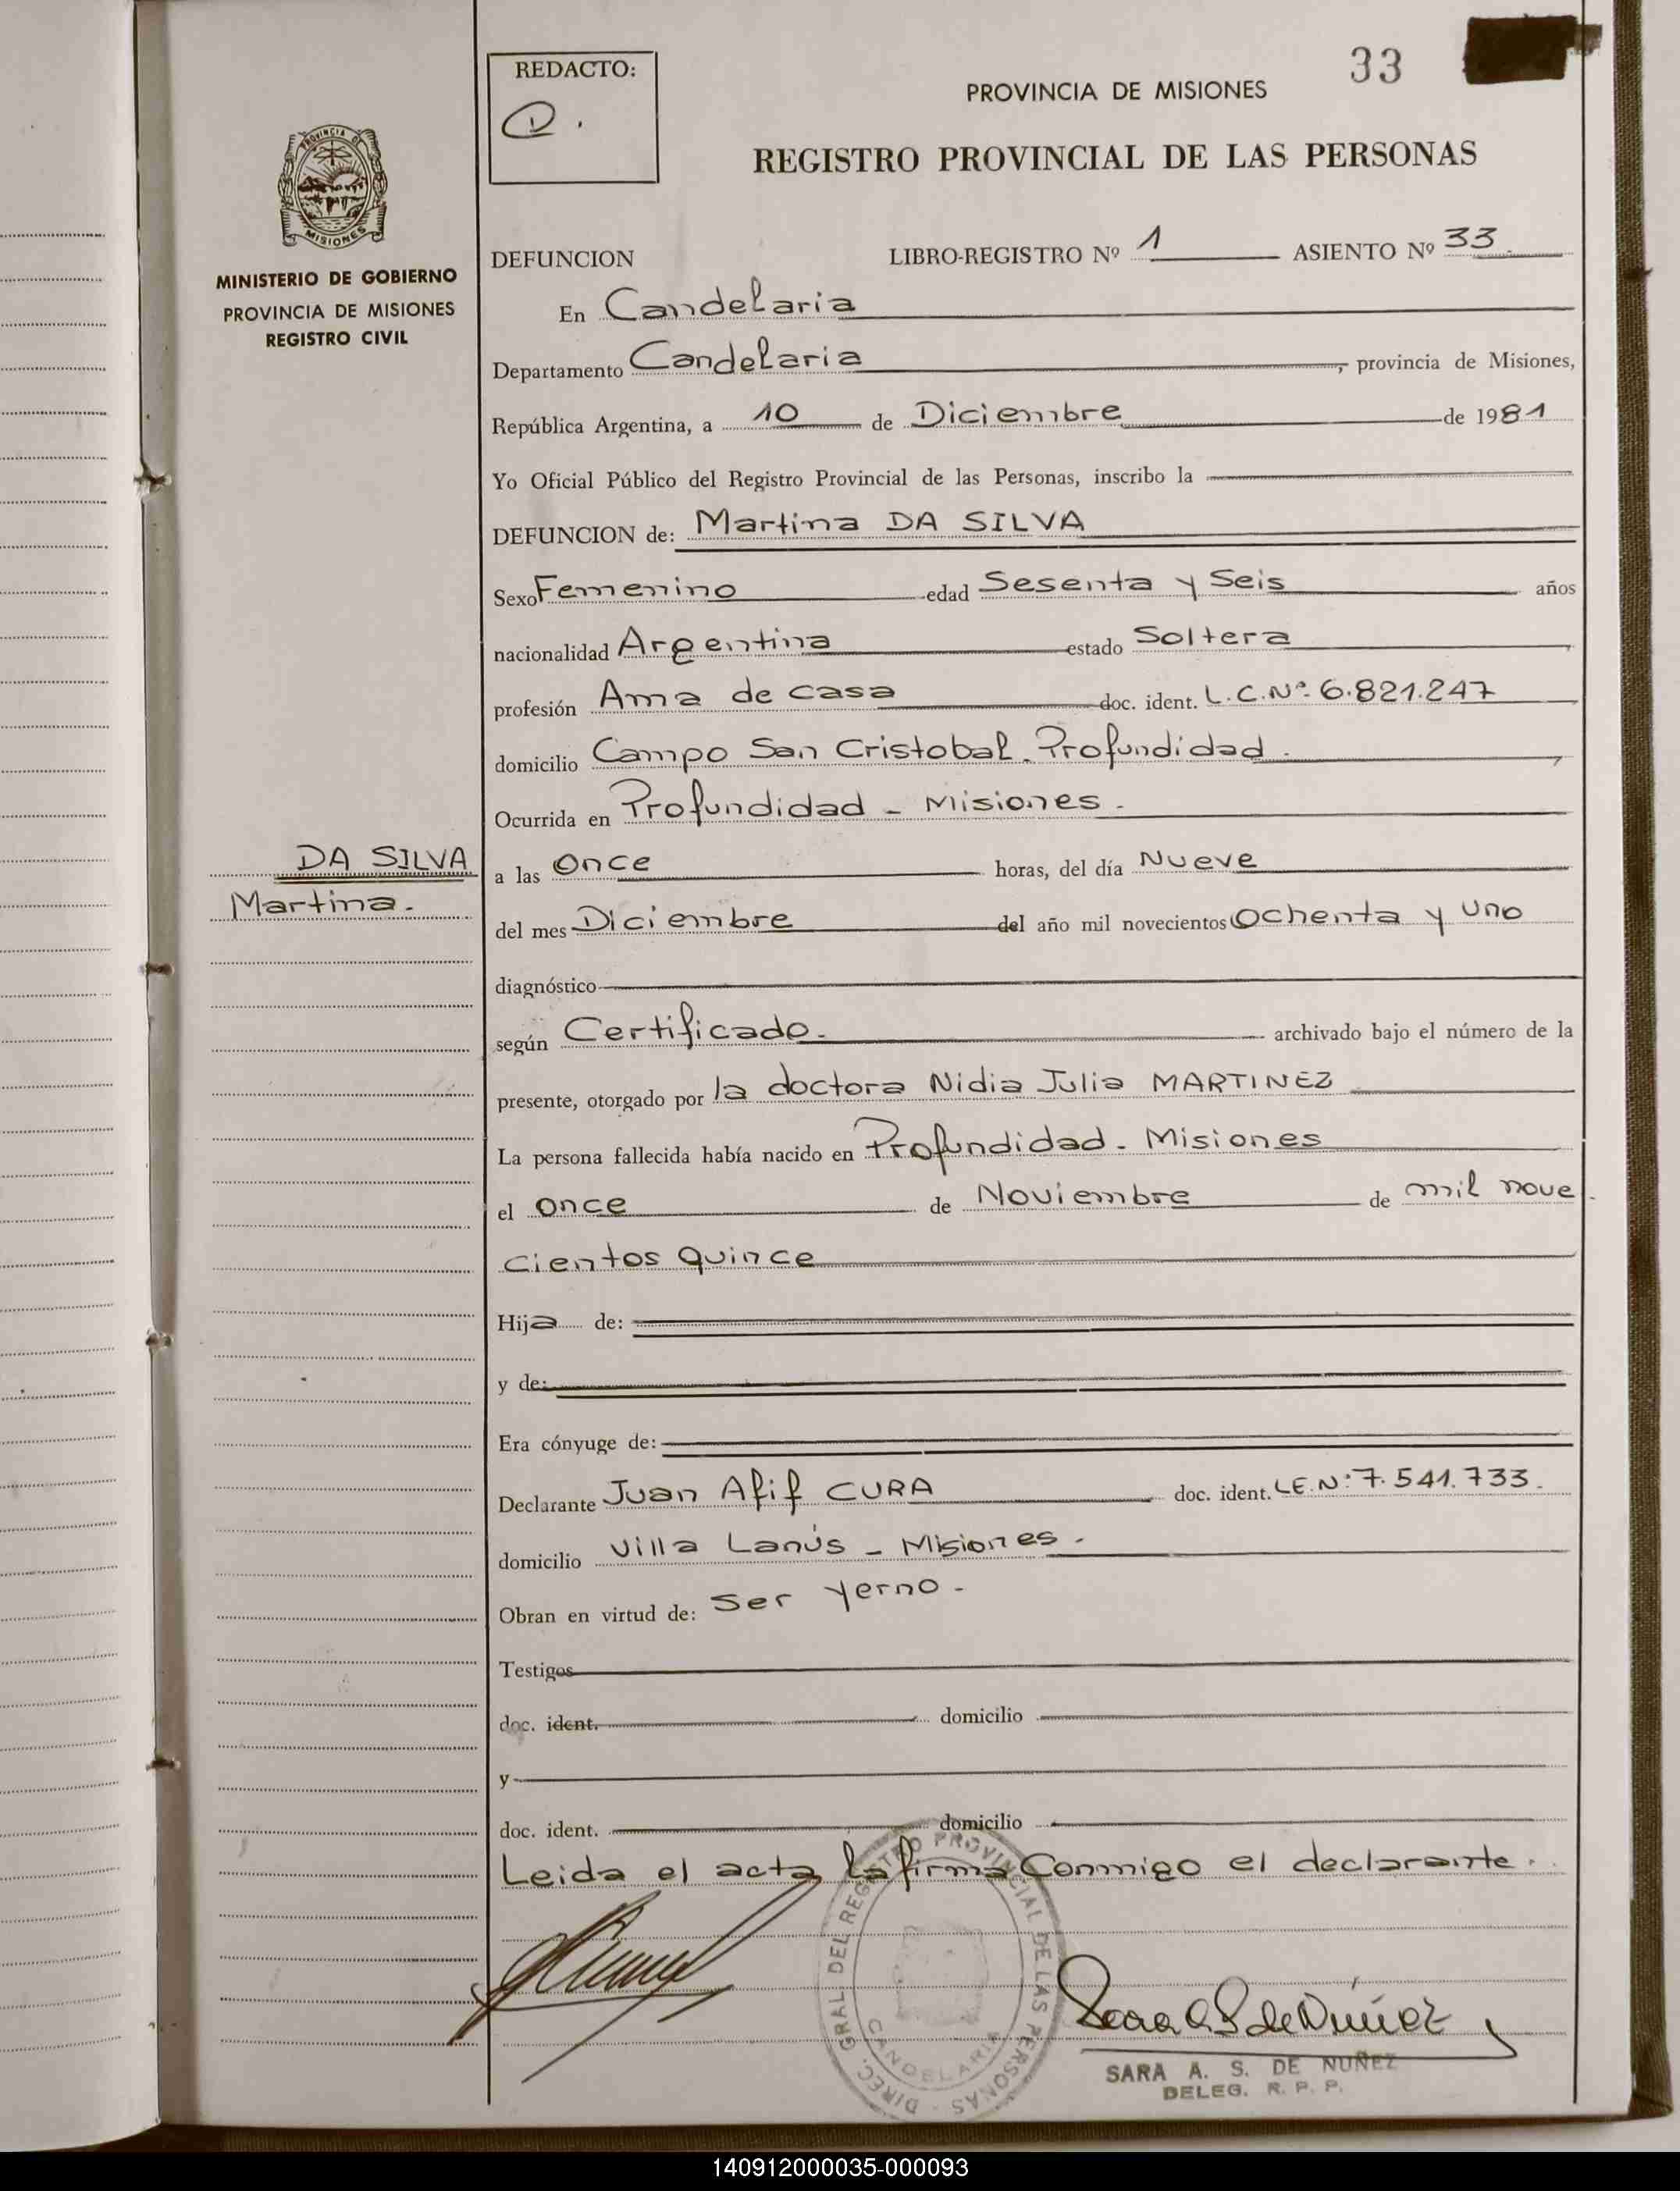 33
REDACTO:
PROVINCIA DE MISIONES
REGISTRO PROVINCIAL DE LAS PERSONAS
PROVINCIA DE
MISIONES
MINISTERIO DE GOBIERNO
PROVINCIA DE MISIONES
REGISTRO CIVIL
DEFUNCION LIBRO-REGISTRO Nº 1 ASIENTO Nº 33
En Candelaria
Departamento Candelaria, provincia de Misiones,
República Argentina, a 10 de Diciembre de 1981
Yo Oficial Público del Registro Provincial de las Personas, inscribo la
DEFUNCION de: Martina DA SILVA
Sexo Femenino edad Sesenta y Seis años
nacionalidad Argentina estado Soltera
profesión Ama de casa doc. ident. L.C.Nº 6.821.247
domicilio Campo San Cristobal. Profundidad.
Ocurrida en Profundidad - Misiones.
DA SILVA
Martina.
a las Once horas, del día Nueve
del mes Diciembre del año mil novecientos Ochenta y uno
diagnóstico
según Certificado. archivado bajo el número de la
presente, otorgado por la doctora Nidia Julia MARTINEZ
La persona fallecida había nacido en Profundidad - Misiones
el Once de Noviembre de mil nove
cientos quince
Hija de:
y de:
Era cónyuge de:
Declarante Juan Afif CURA doc. ident. L.E.Nº: 7.541.733.
domicilio Villa Lanús - Misiones.
Obran en virtud de: Ser yerno -
Testigos
doc. ident. domicilio
y
doc. ident. domicilio
Leida el acta la firma Conmigo el declarante.
DIREC. GRAL DEL REGISTRO PROVINCIAL DE LAS PERSONAS
CANDELARIA
Sara A S de Núñez
SARA A. S. DE NUÑEZ
DELEG. R. P. P.
140912000035-000093